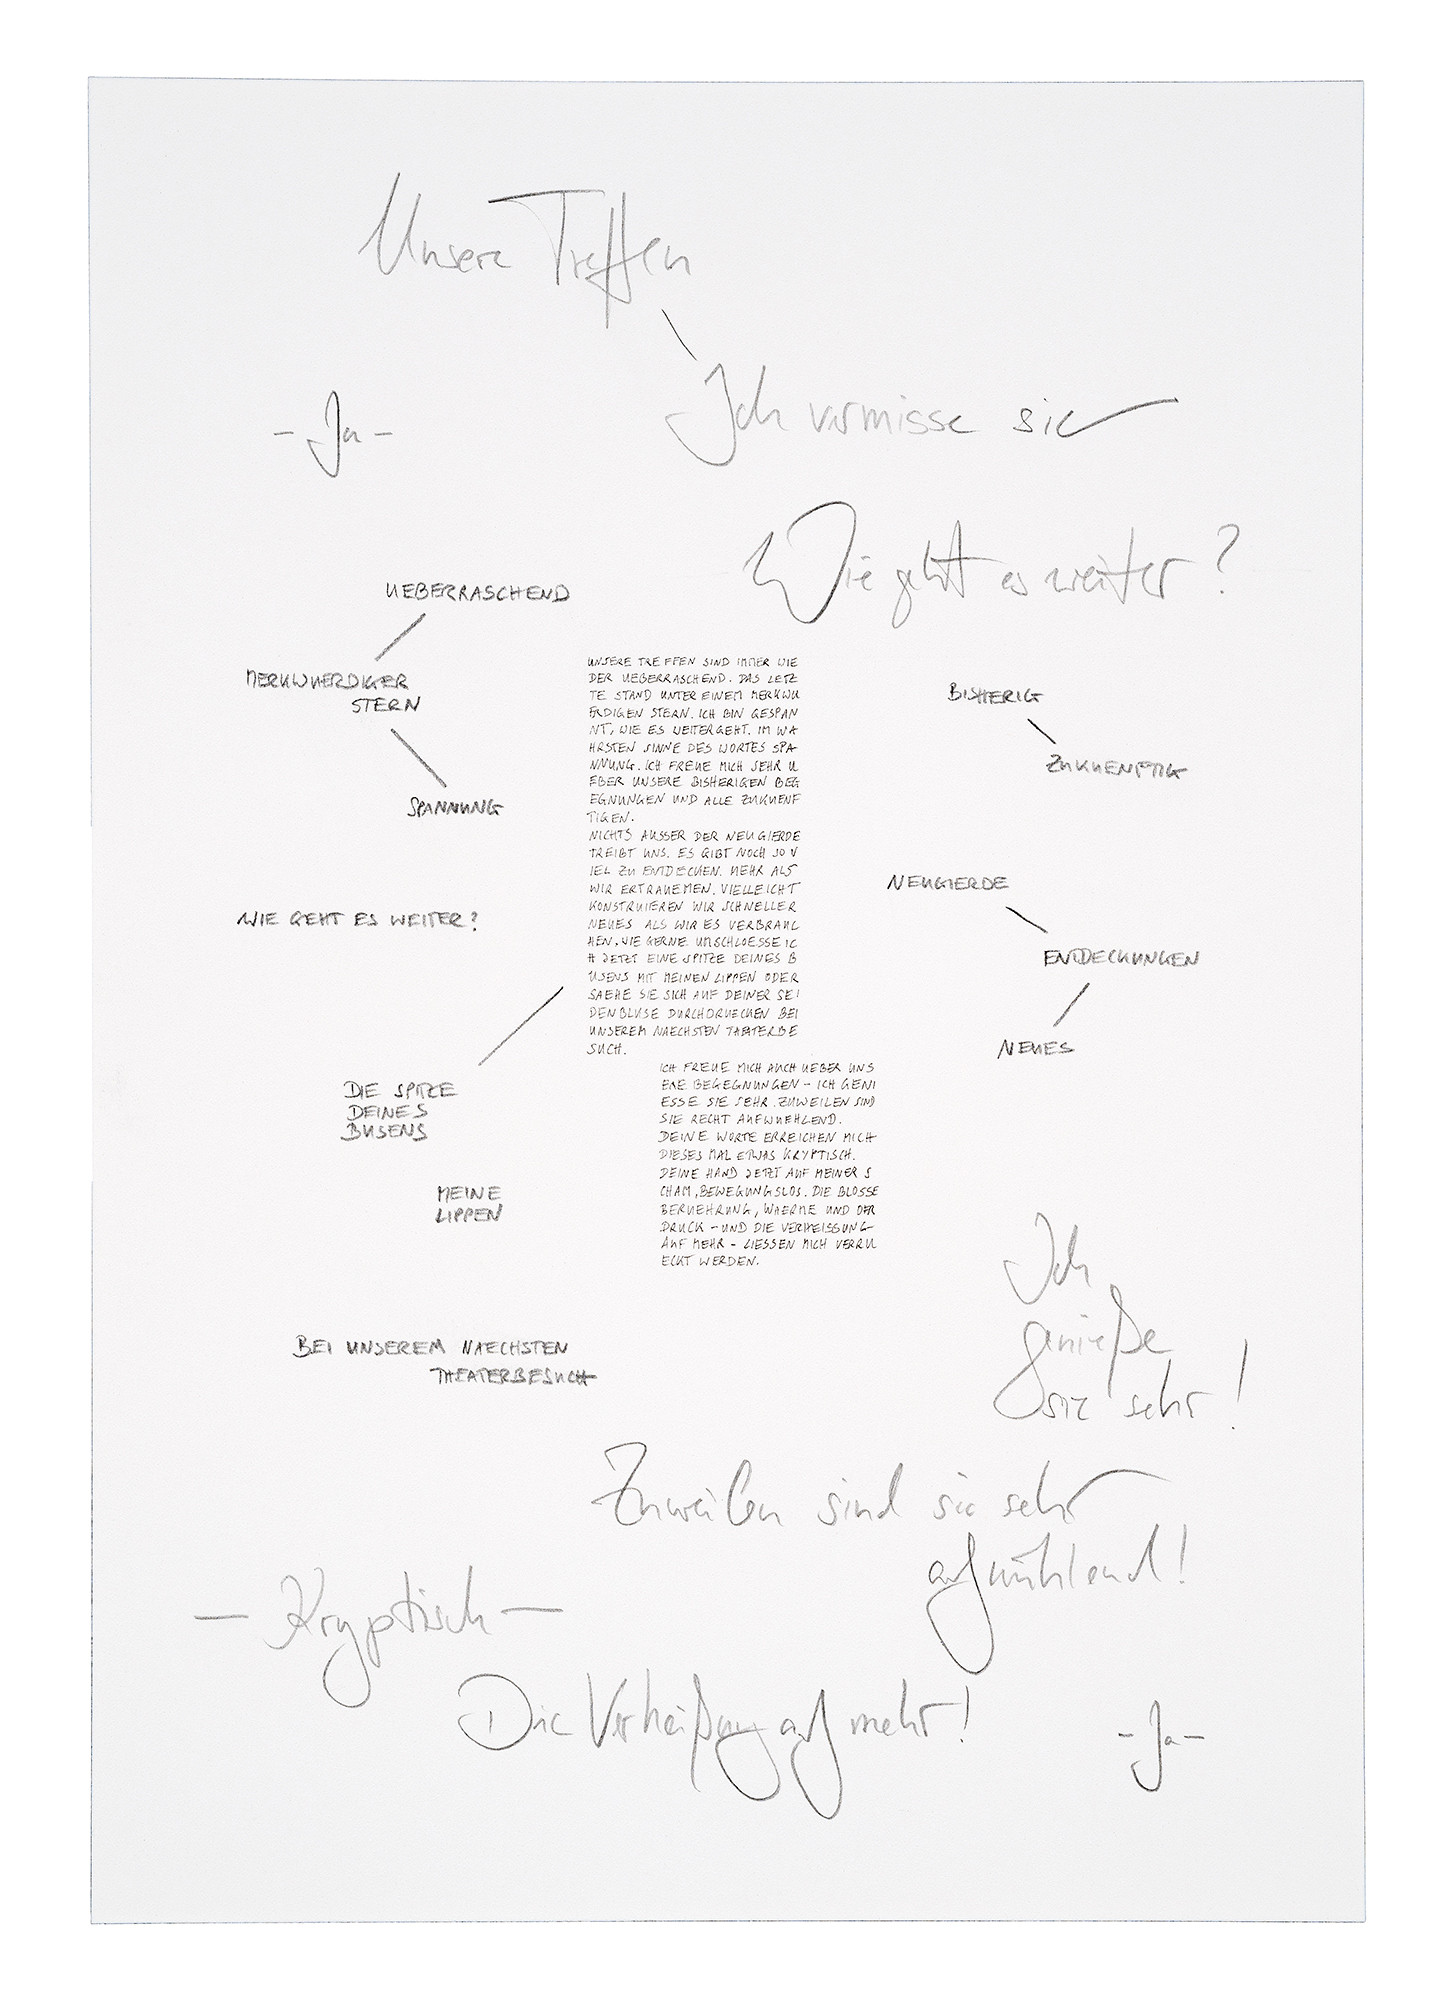 Unsere Treffen
Ich vermisse sie
- Ja -
Wie geht es weiter?
UEBERRASCHEND
MERKWUERDIGER
STERN
SPANNUNG
WIE GEHT ES WEITER?
DIE SPITZE
DEINES
BUSENS
MEINE
LIPPEN
BEI UNSEREM NAECHSTEN
THEATERBESUCH
UNSERE TREFFEN SIND IMMER WIE
DER UEBERRASCHEND. DAS LETZ
TE STAND UNTER EINEM MERKWU
ERDIGEN STERN. ICH BIN GESPAN
NT, WIE ES WEITERGEHT. IM WA
HRSTEN SINNE DES WORTES SPA-
NNUNG. ICH FREUE MICH SEHR U
EBER UNSERE BISHERIGEN BEG
EGNUNGEN UND ALLE ZUKUENF
TIGEN.
NICHTS AUSSER DER NEUGIERDE
TREIBT UNS. ES GIBT NOCH SO V
IEL ZU ENTDECKEN. MEHR ALS
WIR ERTRAEUMEN. VIELLEICHT
KONSTRUIEREN WIR SCHNELLER
NEUES ALS WIR ES VERBRAUC
HEN, WIE GERNE UMSCHLOESSE IC
H JETZT EINE SPITZE DEINES B
USENS MIT MEINEN LIPPEN ODER
SAEHE SIE SICH AUF DEINER SEI
DENBLUSE DURCHDRUECKEN BEI
UNSEREM NAECHSTEN THEATERBE
SUCH.
ICH FREUE MICH AUCH UEBER UNS
ERE BEGEGNUNGEN - ICH GENI
ESSE SIE SEHR. ZUWEILEN SIND
SIE RECHT AUFWUEHLEND.
DEINE WORTE ERREICHEN MICH
DIESES MAL ETWAS KRYPTISCH.
DEINE HAND JETZT AUF MEINER S
CHAM, BEWEGUNGSLOS. DIE BLOSSE
BERUEHRUNG, WAERME UND DER
DRUCK - UND DIE VERHEISSUNG-
AUF MEHR - LIESSEN MICH VERRU
ECKT WERDEN.
BISHERIG
ZUKUENFTIG
NEUGIERDE
ENTDECKUNGEN
NEUES
Ich
genieße
sie sehr!
Zuweilen sind sie sehr
aufwühlend!
- Kryptisch -
Die Verheißung auf mehr!
- Ja -